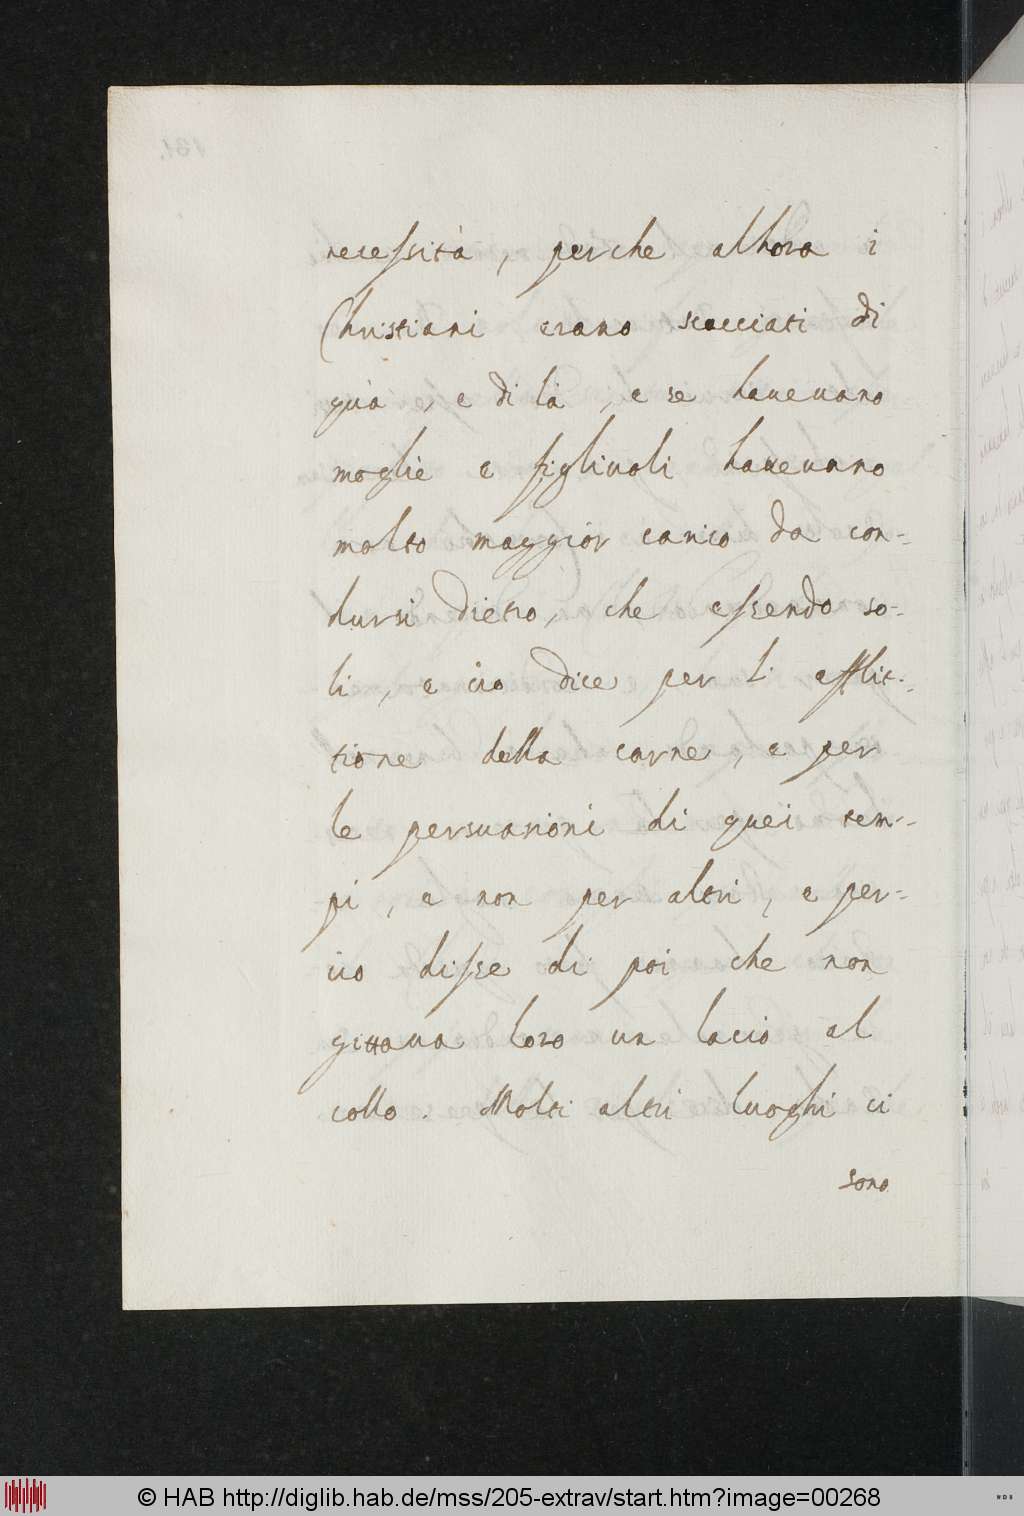 necessità, perche alhora i
Christiani erano scacciati di
quà, e di là, e se haueuano
moglie e figliuoli haueuano
molto maggior carico da con-
dursi dietro, che essendo so-
li, e cio dice per l'afflit-
tione della carne, e per
le persuasioni di quei tem-
pi, e non per altri, e per-
cio disse di poi che non
gittaua loro un lacio al
collo. Molti altri luoghi ci
sono
© HAB http://diglib.hab.de/mss/205-extrav/start.htm?image=00268